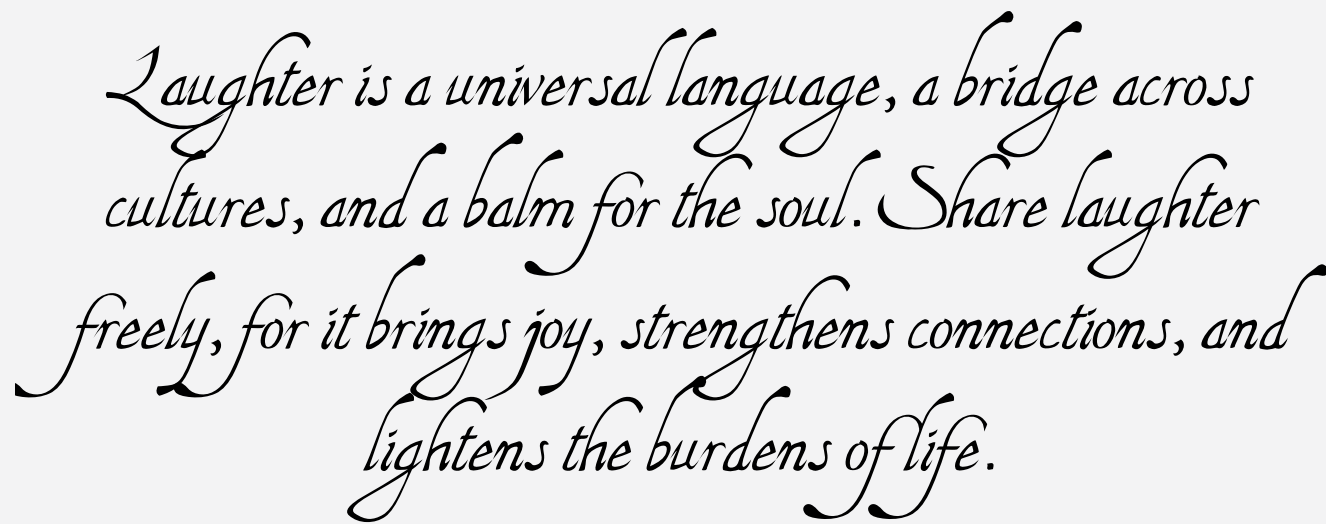 Laughter is a universal language, a bridge across
cultures, and a balm for the soul. Share laughter
freely, for it brings joy, strengthens connections, and
lightens the burdens of life.